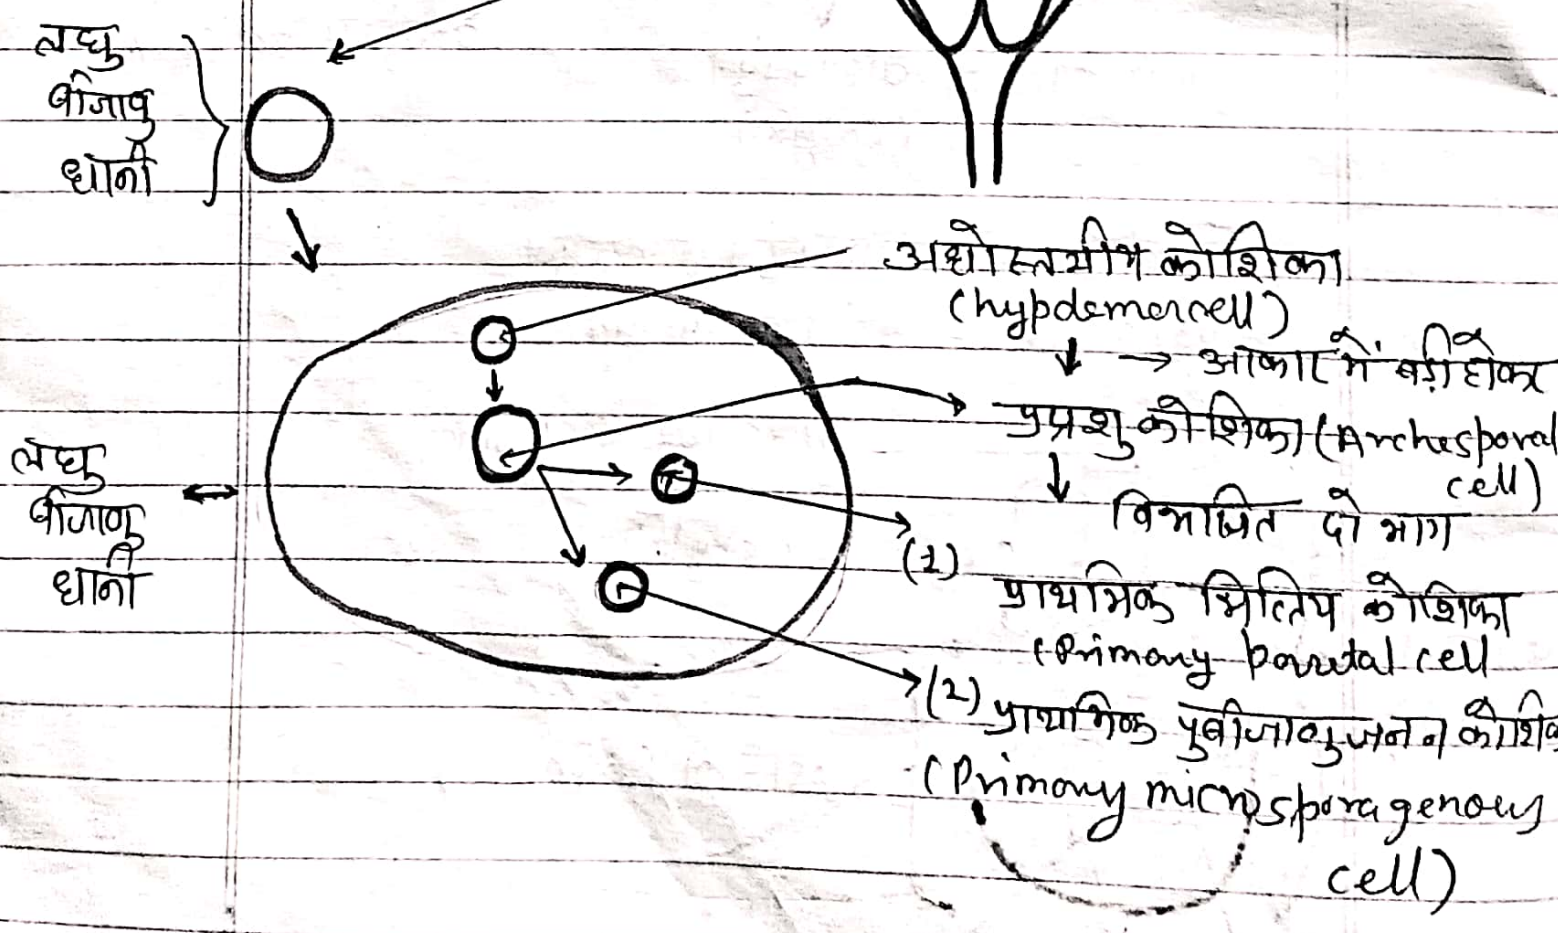 लघु
बीजाणु
धानी
अधोस्तयीम कोशिका
(hypdemorcell)
→ आकार में बड़ी होकर
प्रप्रशु कोशिका (Archesporal
cell)
विभाजित दो भाग
लघु
बीजाणु
धानी
(1)
प्राथमिक भित्तिय कोशिका
(Primary parietal cell
(2) प्राथमिक पुबीजाणुजनन कोशिक
(Primary microsporagenous
cell)